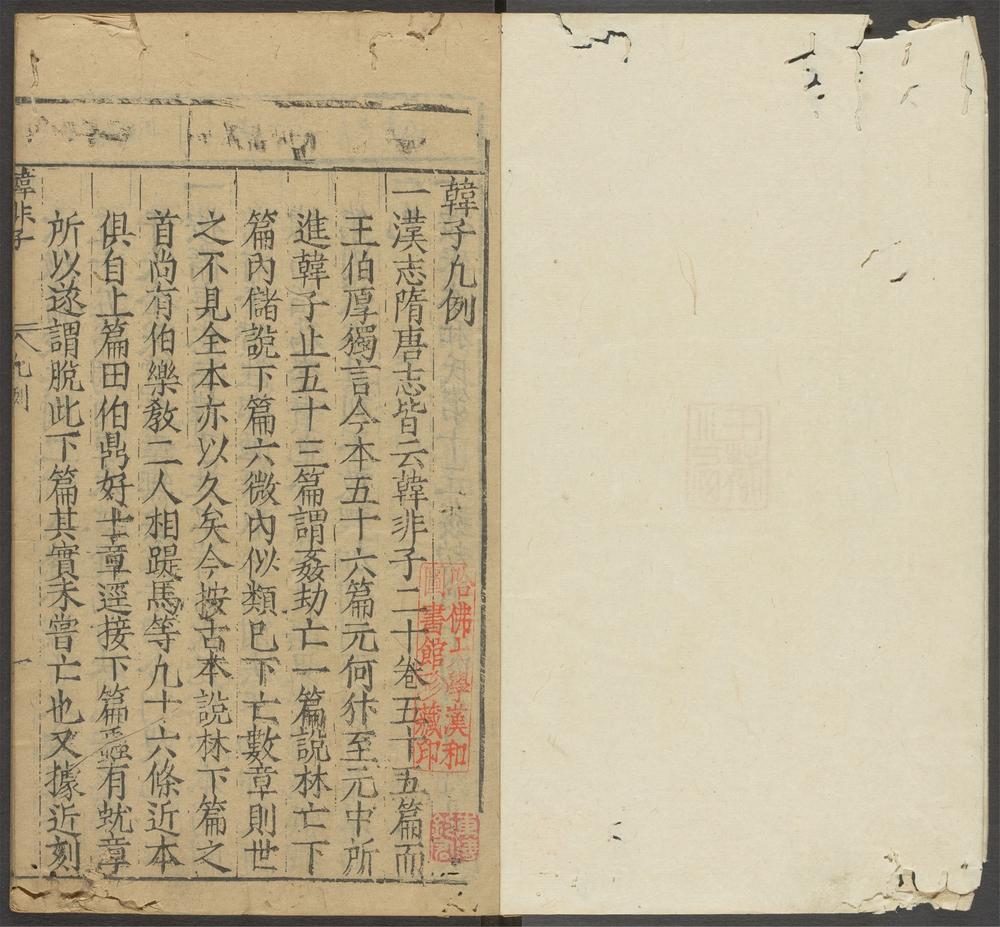 韓子凡例
一漢志隋唐志皆云韓非子二十卷五十五篇而
王伯厚獨言今本五十六篇元何犿至元中所
進韓子止五十三篇謂姦劫亡一篇說林亡下
篇內儲說下篇六微內似類已下亡數章則世
之不見全本亦以久矣今按古本說林下篇之
首尚有伯樂教二人相踶馬等凡十六條近本
俱自上篇田伯鼎好士章逕接下篇蟲有蚘章
所以遂謂脫此下篇其實未嘗亡也又據近刻
韓非子
凡例
一
哈佛大學漢和
圖書館珍藏印